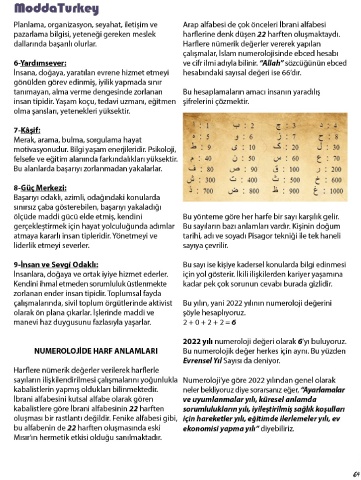 ModdaTurkey
Planlama, organizasyon, seyahat, iletişim ve
pazarlama bilgisi, yeteneği gereken meslek
dallarında başarılı olurlar.
6-Yardımsever:
İnsana, doğaya, yaratılan evrene hizmet etmeyi
gönülden görev edinmiş, iyilik yapmada sınır
tanımayan, alma verme dengesinde zorlanan
insan tipidir. Yaşam koçu, tedavi uzmanı, eğitmen
olma şansları, yetenekleri yüksektir.
7-Kâşif:
Merak, arama, bulma, sorgulama hayat
motivasyonudur. Bilgi yaşam enerjileridir. Psikoloji,
felsefe ve eğitim alanında farkındalıkları yüksektir.
Bu alanlarda başarıyı zorlanmadan yakalarlar.
8-Güç Merkezi:
Başarıyı odaklı, azimli, odağındaki konularda
sınırsız çaba gösterebilen, başarıyı yakaladığı
ölçüde maddi gücü elde etmiş, kendini
gerçekleştirmek için hayat yolculuğunda adımlar
atmaya kararlı insan tipleridir. Yönetmeyi ve
liderlik etmeyi severler.
9-İnsan ve Sevgi Odaklı:
İnsanlara, doğaya ve ortak iyiye hizmet ederler.
Kendini ihmal etmeden sorumluluk üstlenmekte
zorlanan ender insan tipidir. Toplumsal fayda
çalışmalarında, sivil toplum örgütlerinde aktivist
olarak ön plana çıkarlar. İşlerinde maddi ve
manevi haz duygusunu fazlasıyla yaşarlar.
NUMEROLOJİDE HARF ANLAMLARI
Harflere nümerik değerler verilerek harflerle
sayıların ilişkilendirilmesi çalışmalarını yoğunlukla
kabalistlerin yapmış oldukları bilinmektedir.
İbrani alfabesini kutsal alfabe olarak gören
kabalistlere göre İbrani alfabesinin 22 harften
oluşması bir rastlantı değildir. Fenike alfabesi gibi,
bu alfabenin de 22 harften oluşmasında eski
Mısır'ın hermetik etkisi olduğu sanılmaktadır.
Arap alfabesi de çok önceleri İbrani alfabesi
harflerine denk düşen 22 harften oluşmaktaydı.
Harflere nümerik değerler vererek yapılan
çalışmalar, İslam numerolojisinde ebced hesabı
ve cifr ilmi adıyla bilinir. "Allah" sözcüğünün ebced
hesabındaki sayısal değeri ise 66'dır.
Bu hesaplamaların amacı insanın yaradılış
şifrelerini çözmektir.
ا : 1 ب : 2 ج : 3 د : 4
ه : 5 و : 6 ز : 7 ح : 8
ط : 9 ي : 10 ك : 20 ل : 30
م : 40 ن : 50 س : 60 ع : 70
ف : 80 ص : 90 ق : 100 ر : 200
ش : 300 ت : 400 ث : 500 خ : 600
ذ : 700 ض : 800 ظ : 900 غ : 1000
Bu yönteme göre her harfe bir sayı karşılık gelir.
Bu sayıların bazı anlamları vardır. Kişinin doğum
tarihi, adı ve soyadı Pisagor tekniği ile tek haneli
sayıya çevrilir.
Bu sayı ise kişiye kadersel konularda bilgi edinmesi
için yol gösterir. İkili ilişkilerden kariyer yaşamına
kadar pek çok sorunun cevabı burada gizlidir.
Bu yılın, yani 2022 yılının numeroloji değerini
şöyle hesaplıyoruz.
2 + 0 + 2 + 2 = 6
2022 yılı numeroloji değeri olarak 6'yı buluyoruz.
Bu numerolojik değer herkes için aynı. Bu yüzden
Evrensel Yıl Sayısı da deniyor.
Numeroloji'ye göre 2022 yılından genel olarak
neler bekliyoruz diye sorarsanız eğer, "Ayarlamalar
ve uyumlanmalar yılı, küresel anlamda
sorumlulukların yılı, iyileştirilmiş sağlık koşulları
için hareketler yılı, eğitimde ilerlemeler yılı, ev
ekonomisi yapma yılı" diyebiliriz.